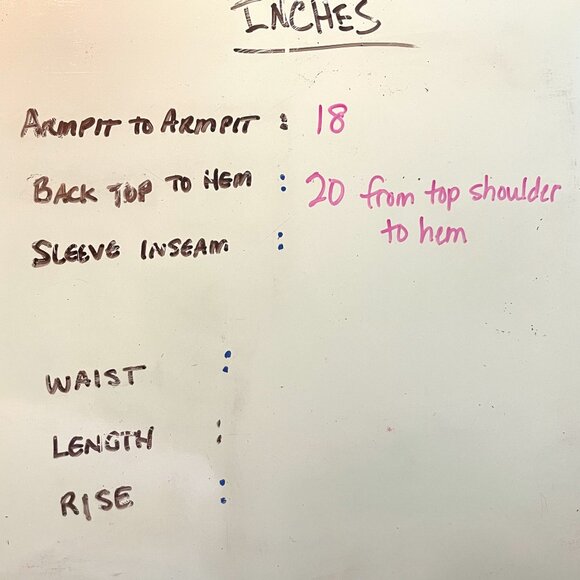 INCHES
ARMPIT TO ARMPIT : 18
BACK TOP TO HEM : 20 from top shoulder
to hem
SLEEVE INSEAM :
WAIST :
LENGTH :
RISE :